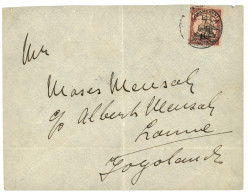 Mr
Moses Mensah
c/o Albert Mensah
Lome
Togoland